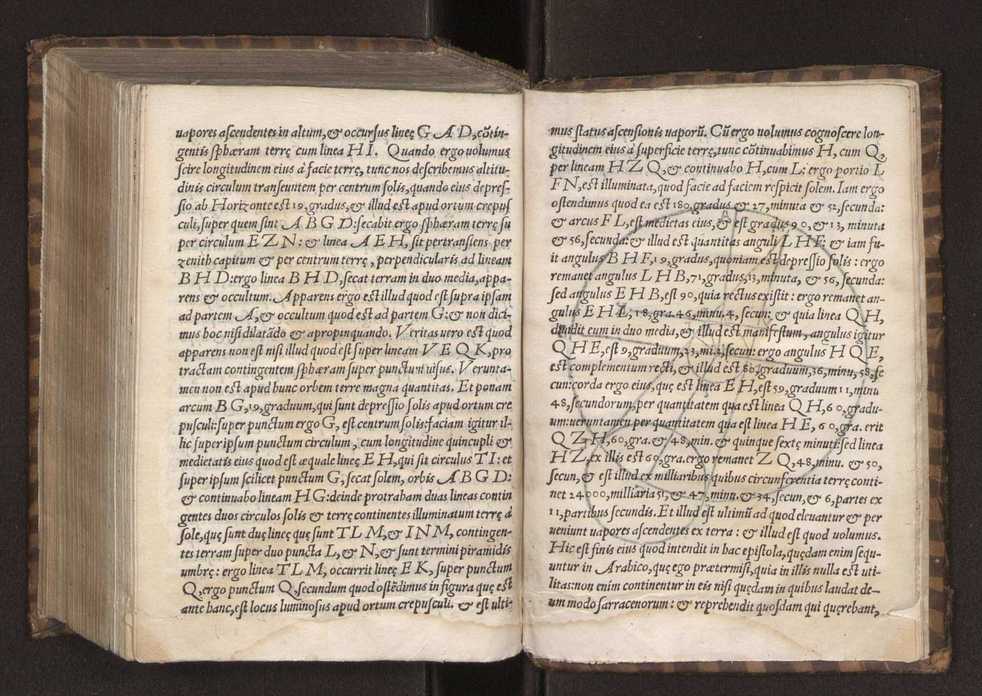 uapores ascendentes in altum, & occursus lineę G A D, cõtin-
gentis sphæram terrę cum linea H I. Quando ergo uolumus
scire longitudinem eius à facie terrę, tunc nos describemus altitu-
dinis circulum transeuntem per centrum solis, quando eius depres-
sio ab Horizonte est 19, gradus, & illud est apud ortum crepus
culi, super quem sint A B G D: secabit ergo sphæram terrę su
per circulum E Z N: & linea A E H, sit pertransiens per
zenith capitum & per centrum terrę, perpendicularis ad lineam
B H D: ergo linea B H D, secat terram in duo media, appa-
rens & occultum. Apparens ergo est illud quod est supra ipsam
ad partem A, & occultum quod est ad partem G: & non dici-
mus hoc nisi dilatãdo & apropinquando. Veritas uero est quod
apparens non est nisi illud quod est super lineam V E Q K, pro
tractam contingentem sphæram super punctum uisus. Verunta-
men non est apud hunc orbem terre magna quantitas. Et ponam
arcum B G, 19, graduum, qui sunt depressio solis apud ortum cre
pusculi: super punctum ergo G, est centrum solis: faciam igitur il-
lic super ipsum punctum circulum, cum longitudine quincupli &
medietatis eius quod est æquale lineę E H, qui sit circulus T I: et
super ipsum scilicet punctum G, secat solem, orbis A B G D:
& continuabo lineam H G: deinde protraham duas lineas contin
gentes duos circulos solis & terrę continentes illuminatum terrę à
sole, quę sunt duę lineę quę sunt T L M, & I N M, contingen-
tes terram super duo puncta L, & N, & sunt termini piramidis
umbrę: ergo linea T L M, occurrit lineę E K, super punctum
Q, ergo punctum Q, secundum quod ostẽdimus in figura quę est
ante hanc, est locus luminosus apud ortum crepusculi. & est ulti-
mus status ascensionis uaporũ. Cũ ergo uolumus cognoscere lon-
gitudinem eius à superficie terrę, tunc cõtinuabimus H, cum Q,
per lineam H Z Q, & continuabo H, cum L: ergo portio L
F N, est illuminata, quod facie ad faciem respicit solem. Iam ergo
ostendimus quod ea est 180, gradus & 27, minuta & 52, secunda:
& arcus F L, est medietas eius, & est gradus 90, & 13, minuta
& 56, secunda: & illud est quantitas anguli L H F: & iam fu-
it angulus B H F, 19, gradus, quoniam est depressio solis: ergo
remanet angulus L H B, 71, gradus, 13, minuta, & 56, secunda:
sed angulus E H B, est 90, quia rectus existit: ergo remanet an-
gulus E H L, 18, gra. 46, minu. 4, secun: & quia linea Q H,
diuidit eum in duo media, & illud est manifestum, angulus igitur
Q H E, est 9, graduum, 23, mi. 2, secun: ergo angulus H Q E,
est complementum recti, & illud est 80, graduum, 36, minu, 58, se
cun: corda ergo eius, quę est linea E H, est 59, graduum 11, minu
48, secundorum, per quantitatem qua est linea Q H, 60, gradu-
um: ueruntamen per quantitatem qua est linea H E, 60, gra. erit
Q Z H, 60, gra. & 48, min. & quinque sextę minuti: sed linea
H Z, ex illis est 60, gra. ergo remanet Z Q, 48, minu. & 50,
secun, & est illud ex milliaribus quibus circunferentia terrę conti-
net 24000, milliaria 51, & 47, minu. & 34, secun, & 6, partes ex
11, partibus secundis. Et illud est ultimũ ad quod eleuantur & per
ueniunt uapores ascendentes ex terra: & illud est quod uolumus.
Hic est finis eius quod intendit in hac epistola, quędam enim sequ-
untur in Arabico, quę ego prætermisi, quia in illis nulla est uti-
litas: non enim continentur in eis nisi quędam in quibus laudat de-
um modo sarracenorum: & reprehendit quosdam qui quęrebant,